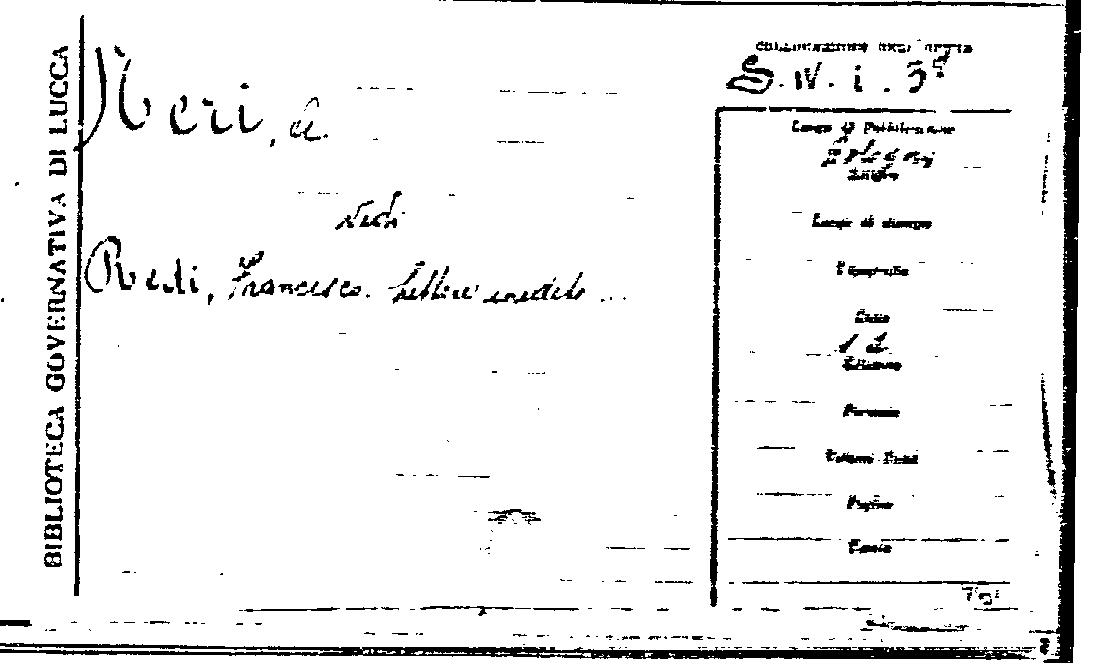 BIBLIOTECA GOVERNATIVA DI LUCCA
Neri, A.
vedi
Redi, Francesco. Lettere inedite ...
COLLOCAZIONE DELL'OPERA
Luogo di Pubblicazione
Bologna
Editore
Luogo di stampa
Tipografia
Data
Edizione
Formato
Volumi
Pagine